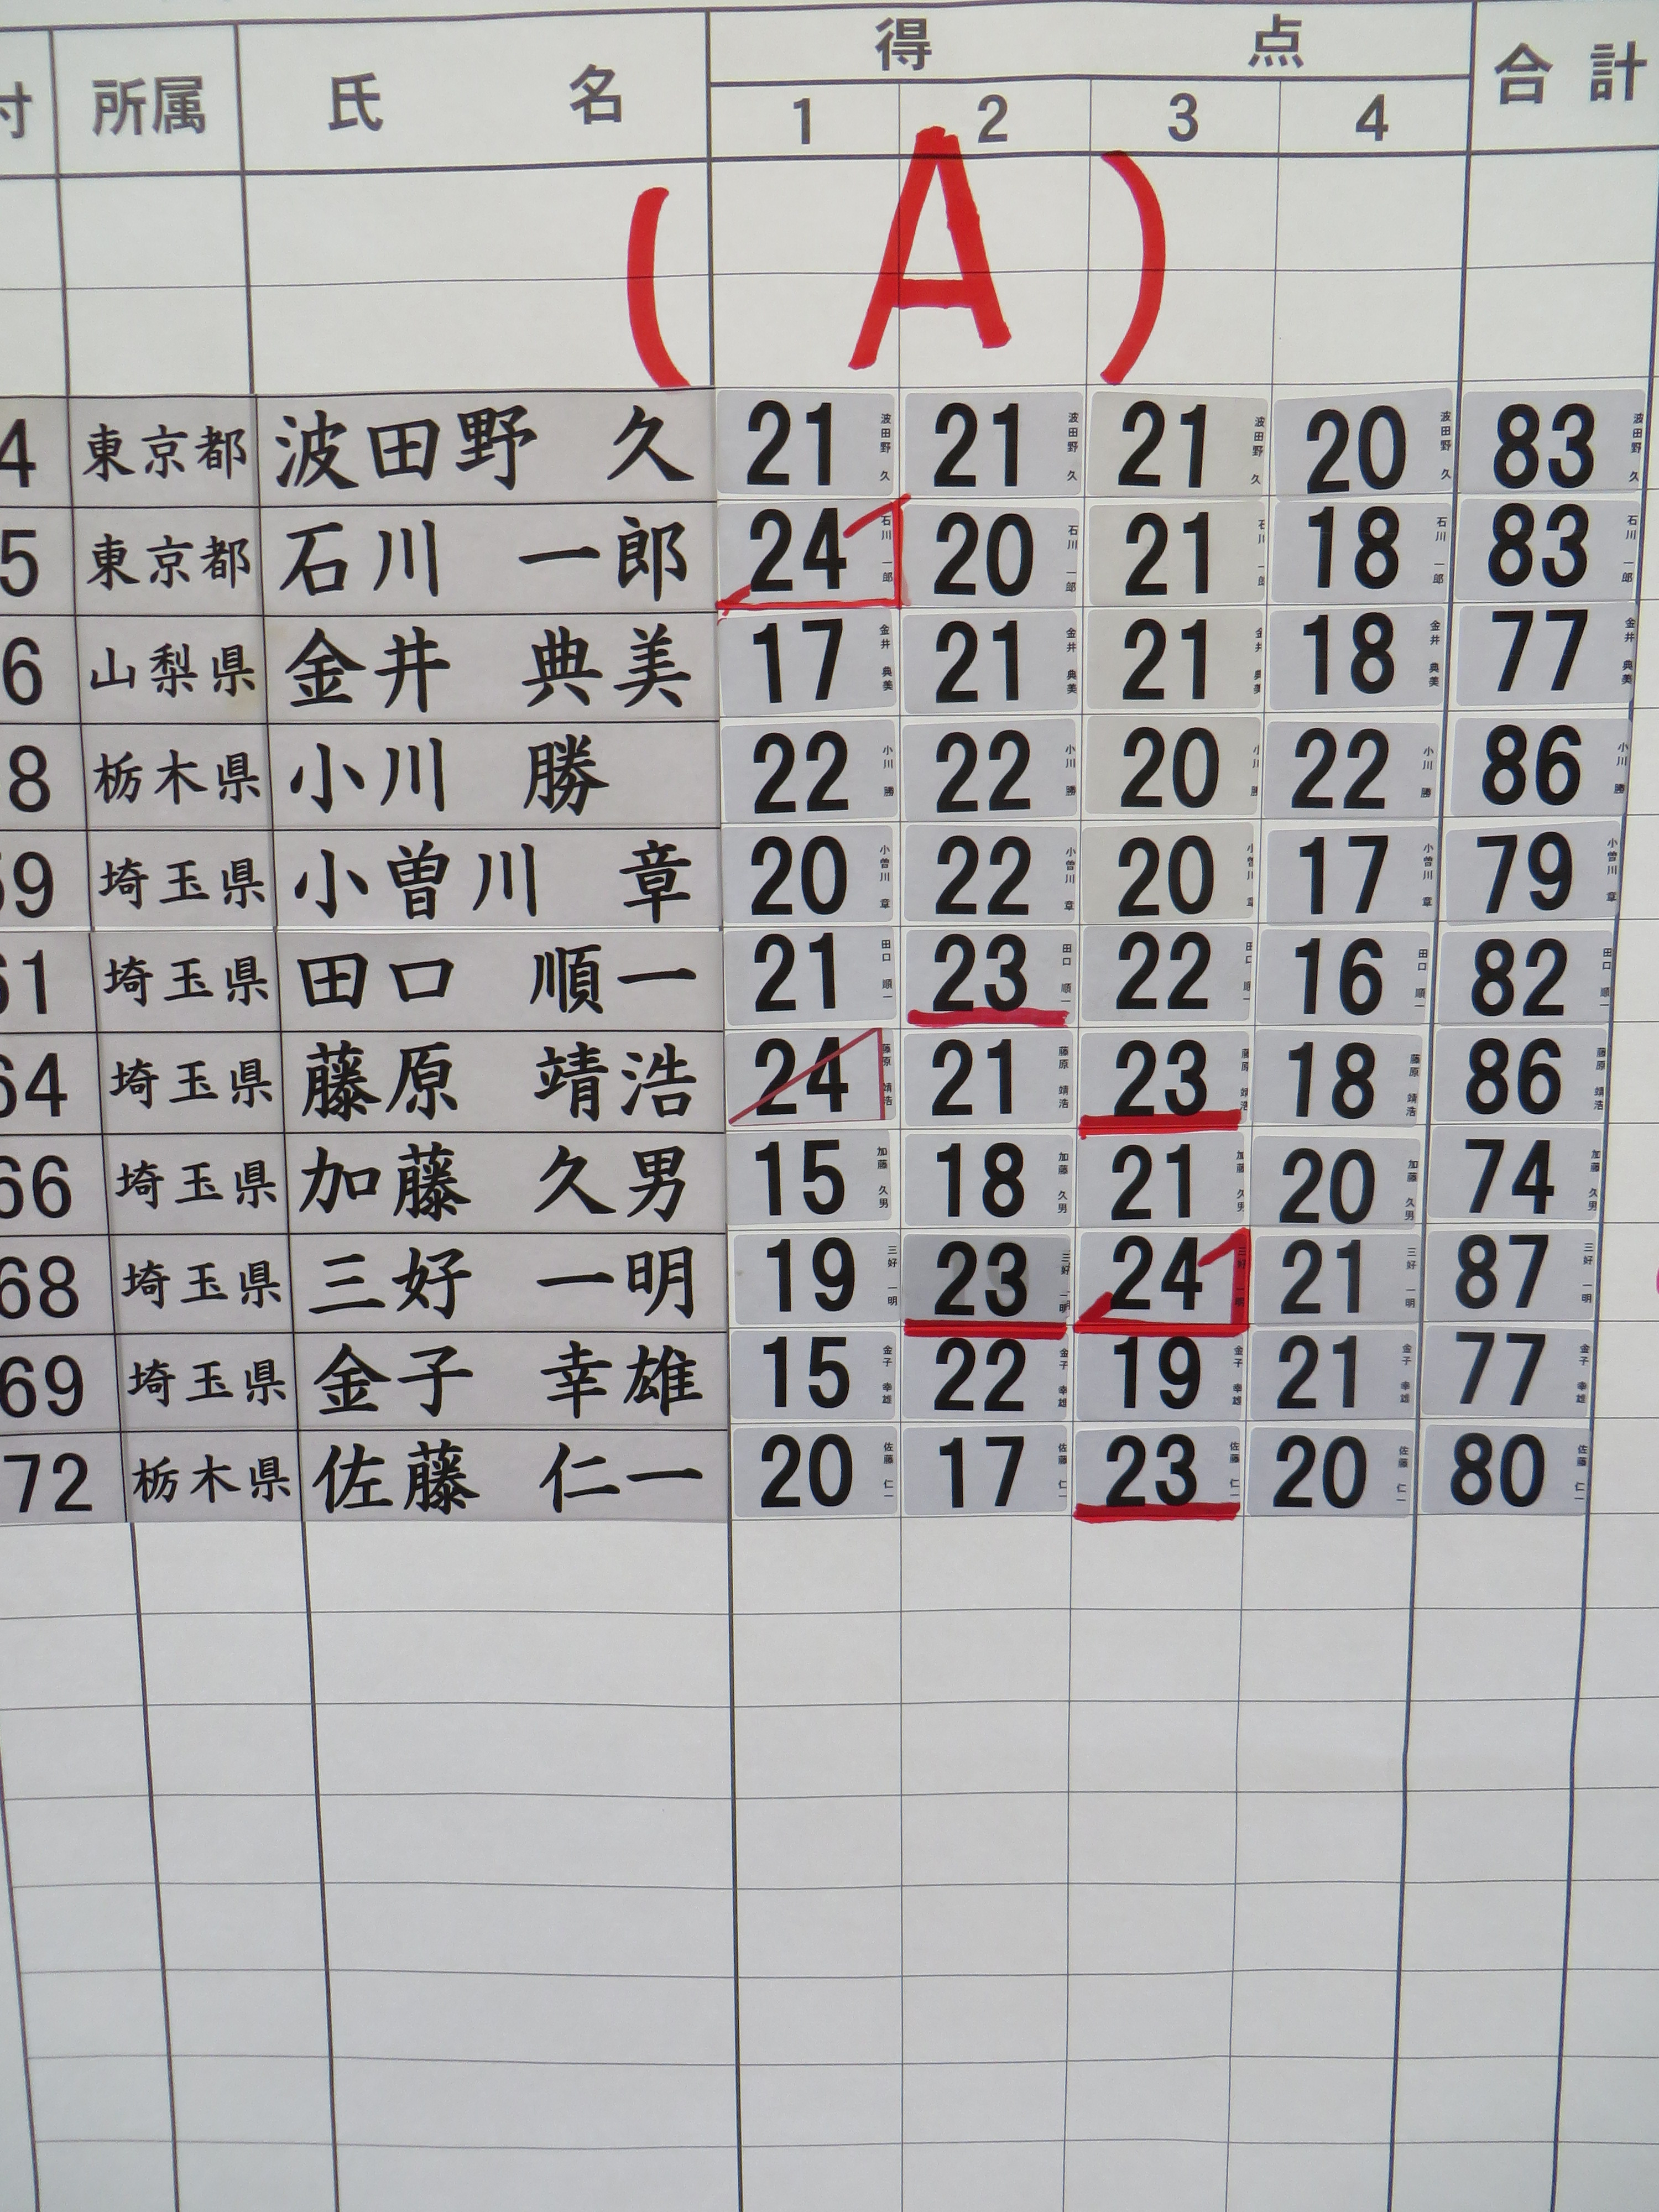 付 所属 氏 名 得 点 合計
1 2 3 4
(A)
4 東京都 波田野 久 21 21 21 20 83
5 東京都 石川 一郎 24 20 21 18 83
6 山梨県 金井 典美 17 21 21 18 77
8 栃木県 小川 勝 22 22 20 22 86
59 埼玉県 小曽川 章 20 22 20 17 79
61 埼玉県 田口 順一 21 23 22 16 82
64 埼玉県 藤原 靖浩 24 21 23 18 86
66 埼玉県 加藤 久男 15 18 21 20 74
68 埼玉県 三好 一明 19 23 24 21 87
69 埼玉県 金子 幸雄 15 22 19 21 77
72 栃木県 佐藤 仁一 20 17 23 20 80